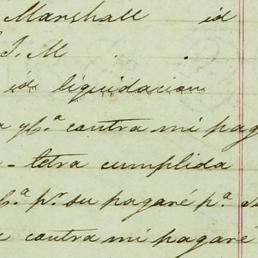 Marshall id
J. M . .
id. liquidacion
a y Cª contra mi pag
letra cumplida
Cª. pr. su pagaré pª
contra mi pagaré